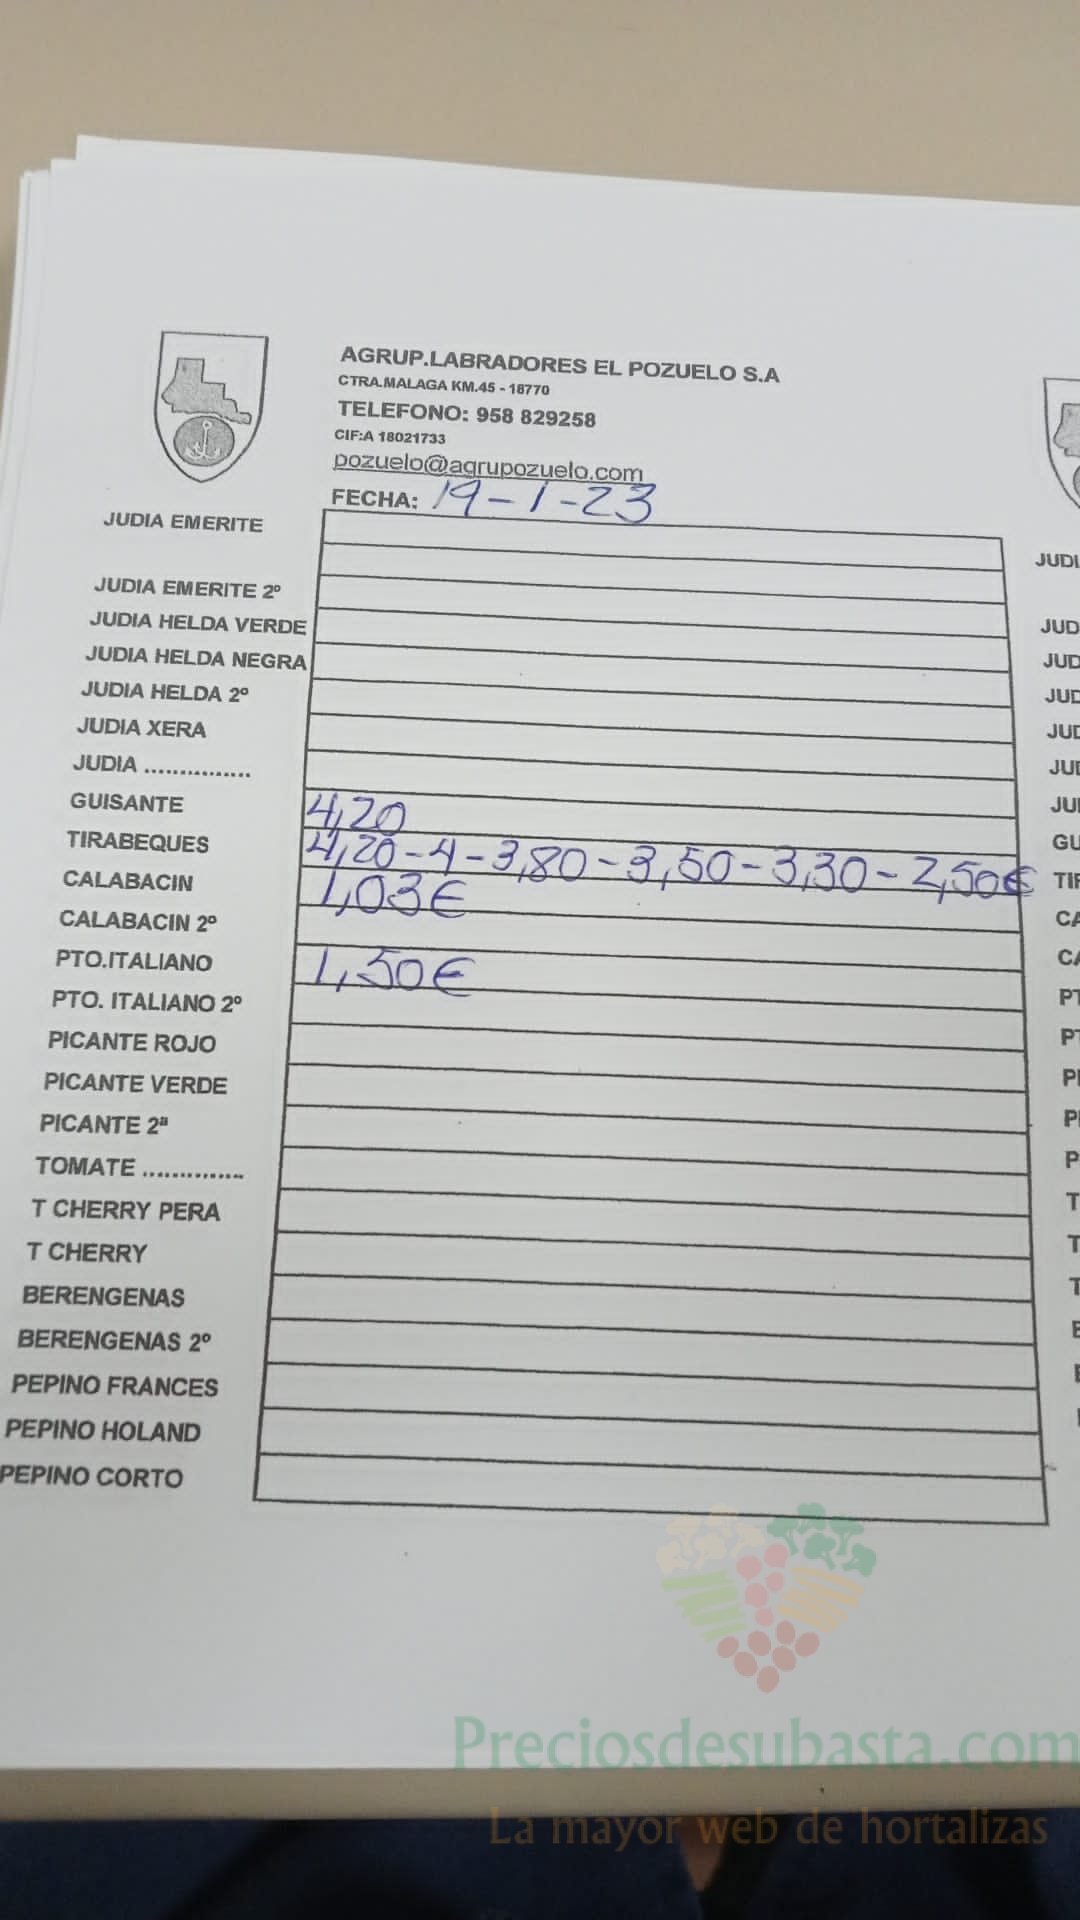 AGRUP.LABRADORES EL POZUELO S.A
CTRA.MALAGA KM.45 - 18770
TELEFONO: 958 829258
CIF:A 18021733
pozuelo@agrupozuelo.com
FECHA: 19-1-23
JUDIA EMERITE
JUDIA EMERITE 2º
JUDIA HELDA VERDE
JUDIA HELDA NEGRA
JUDIA HELDA 2º
JUDIA XERA
JUDIA ...............
GUISANTE 4,20
TIRABEQUES 4,20-4-3,80-3,50-3,30-2,50€
CALABACIN 1,03€
CALABACIN 2º
PTO.ITALIANO 1,50€
PTO. ITALIANO 2º
PICANTE ROJO
PICANTE VERDE
PICANTE 2ª
TOMATE ..............
T CHERRY PERA
T CHERRY
BERENGENAS
BERENGENAS 2º
PEPINO FRANCES
PEPINO HOLAND
PEPINO CORTO
JUDI
JUD
JUD
JUD
JUD
JUD
JUI
GU
TIR
CA
CA
PT
PT
PI
PI
P
T
T
T
Preciosdesubasta.com
La mayor web de hortalizas